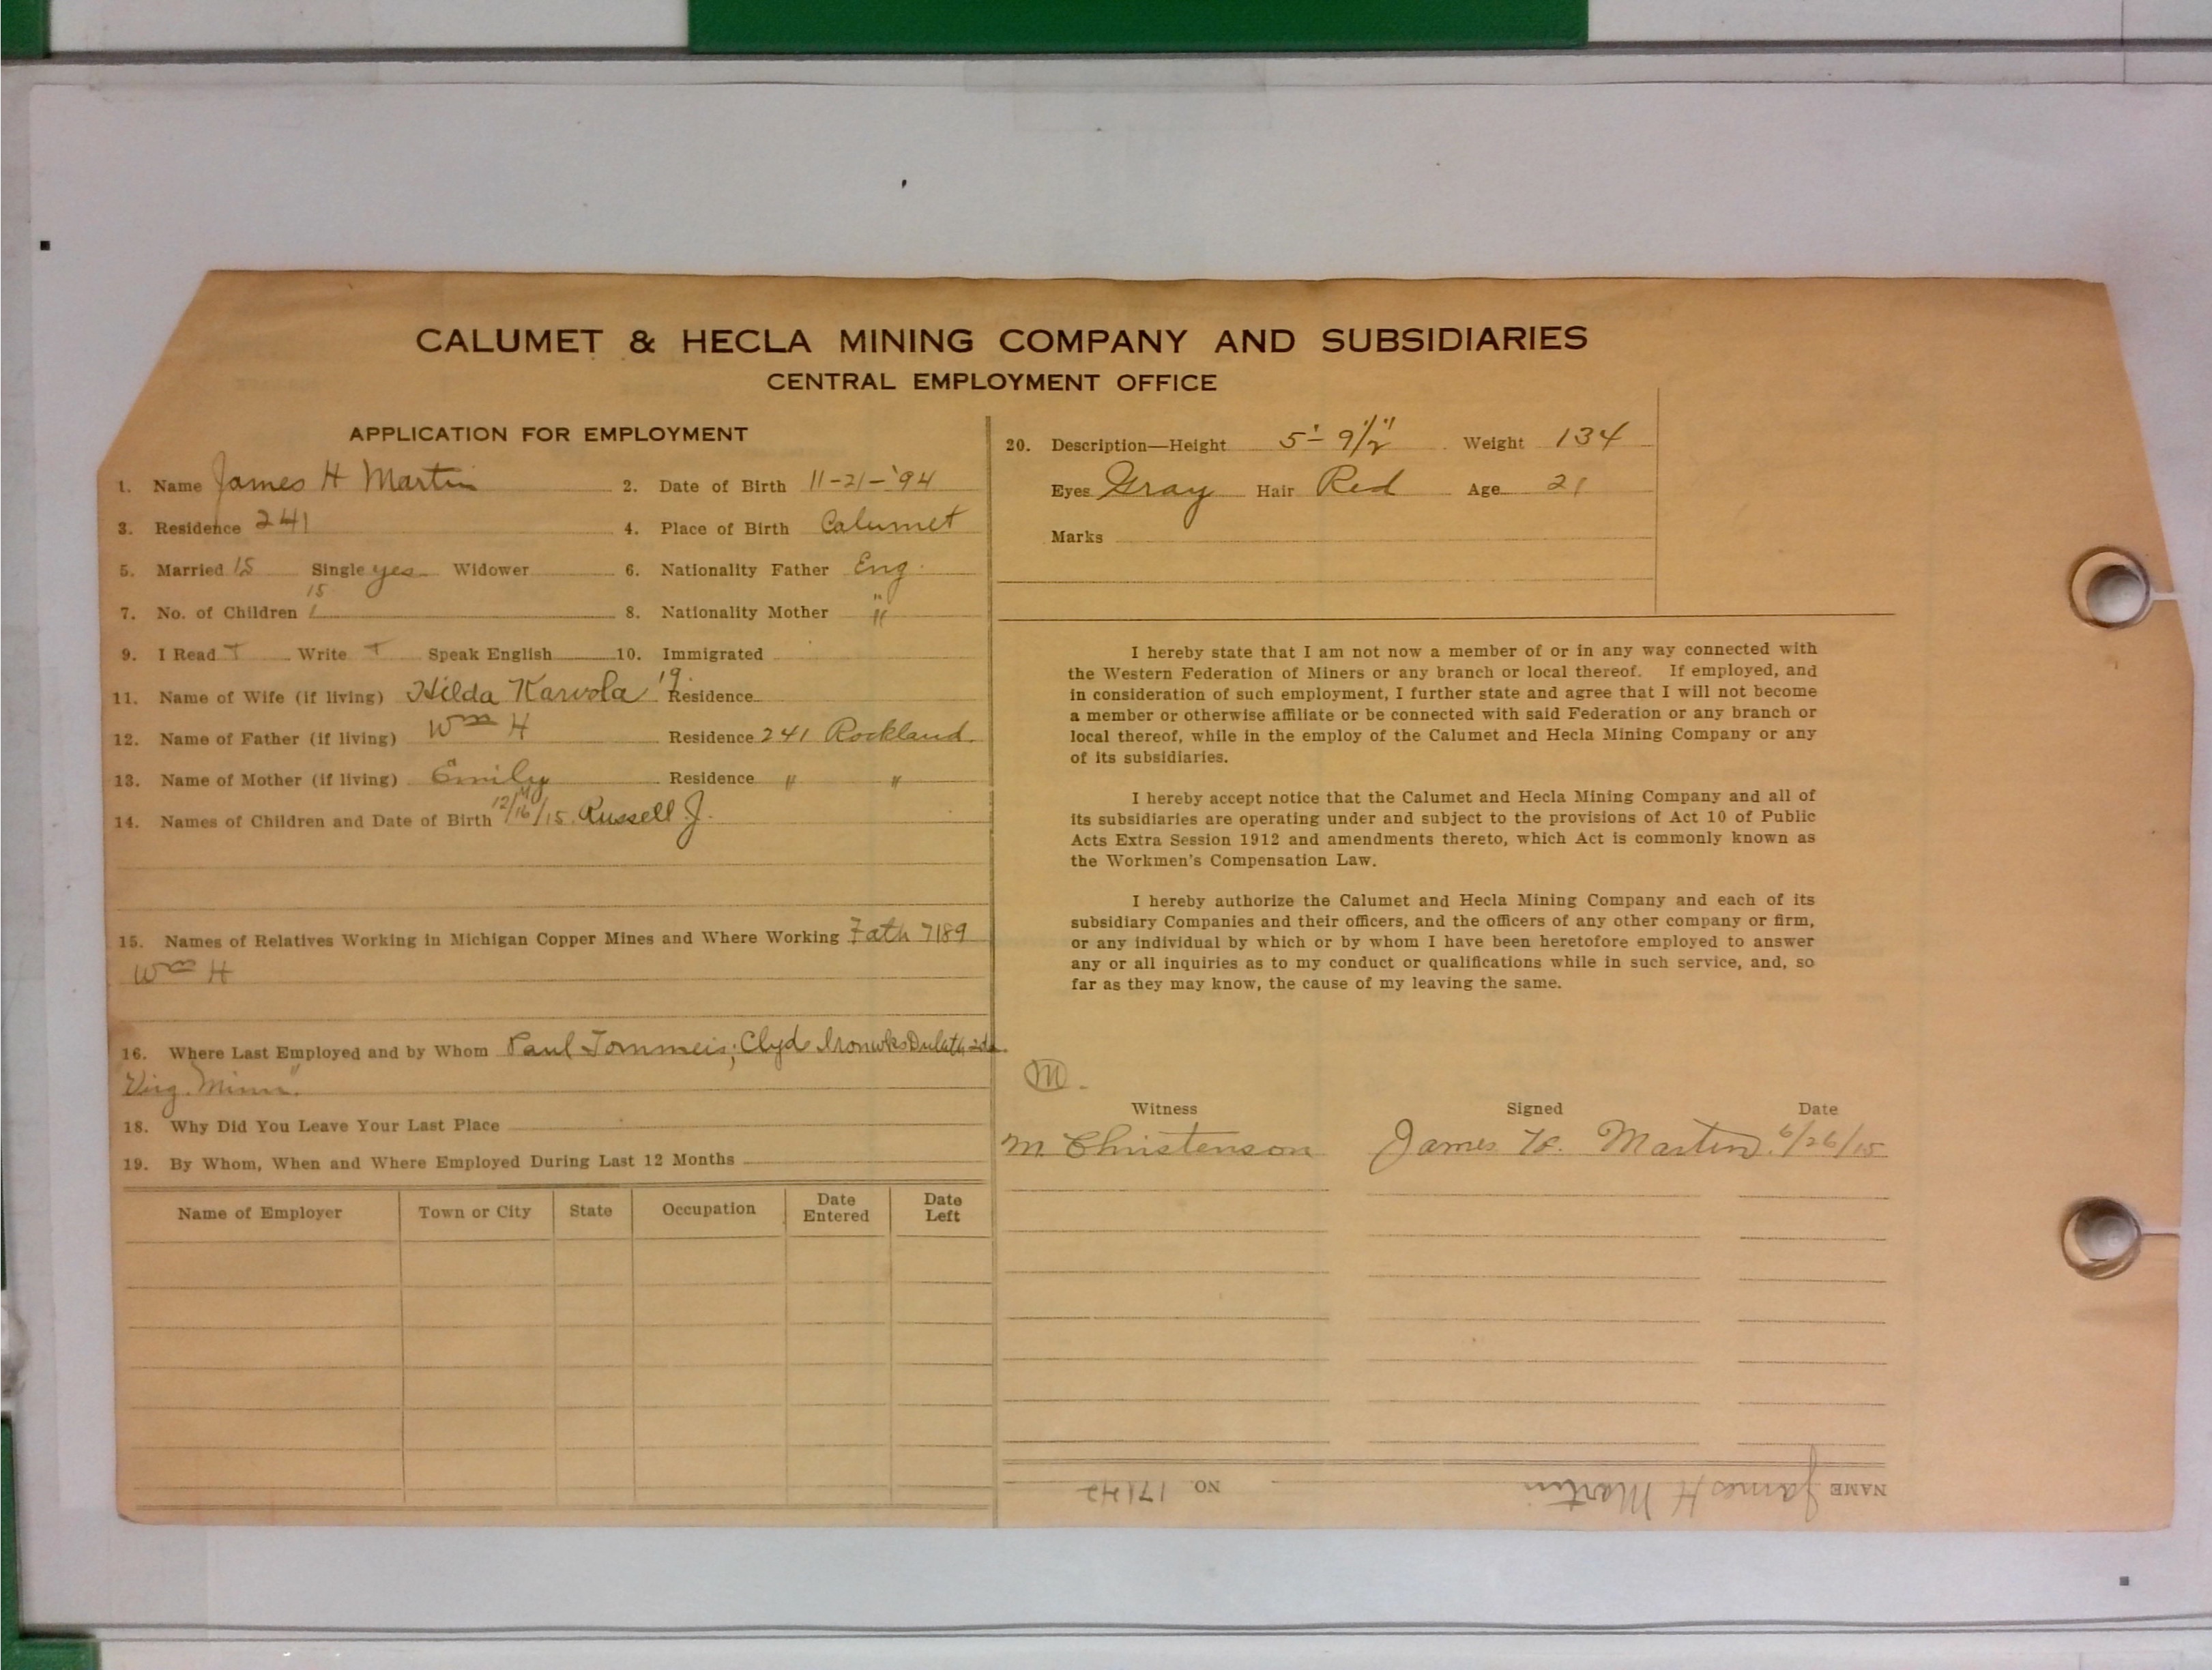 CALUMET & HECLA MINING COMPANY AND SUBSIDIARIES
CENTRAL EMPLOYMENT OFFICE
APPLICATION FOR EMPLOYMENT
1. Name James H Martin 2. Date of Birth 11-21-'94
3. Residence 241 4. Place of Birth Calumet
5. Married 15 Single yes Widower 6. Nationality Father Eng.
15
7. No. of Children 1 8. Nationality Mother "
9. I Read Write Speak English 10. Immigrated
11. Name of Wife (if living) Hilda Karvola '19. Residence
12. Name of Father (if living) Wm H Residence 241 Rockland
13. Name of Mother (if living) Emily Residence " "
14. Names of Children and Date of Birth 12/16/15 Russell J.
15. Names of Relatives Working in Michigan Copper Mines and Where Working Fath 7189
Wm H
16. Where Last Employed and by Whom Paul Clyde Duluth
Virg. Minn.
18. Why Did You Leave Your Last Place
19. By Whom, When and Where Employed During Last 12 Months
Name of Employer Town or City State Occupation Date Entered Date Left
20. Description—Height 5'-9 1/2" Weight 134
Eyes Gray Hair Red Age 21
Marks
I hereby state that I am not now a member of or in any way connected with
the Western Federation of Miners or any branch or local thereof. If employed, and
in consideration of such employment, I further state and agree that I will not become
a member or otherwise affiliate or be connected with said Federation or any branch or
local thereof, while in the employ of the Calumet and Hecla Mining Company or any
of its subsidiaries.
I hereby accept notice that the Calumet and Hecla Mining Company and all of
its subsidiaries are operating under and subject to the provisions of Act 10 of Public
Acts Extra Session 1912 and amendments thereto, which Act is commonly known as
the Workmen's Compensation Law.
I hereby authorize the Calumet and Hecla Mining Company and each of its
subsidiary Companies and their officers, and the officers of any other company or firm,
or any individual by which or by whom I have been heretofore employed to answer
any or all inquiries as to my conduct or qualifications while in such service, and, so
far as they may know, the cause of my leaving the same.
M.
Witness Signed Date
M Christenson James H. Martin. 6/26/15
NAME James H Martin NO. 17142